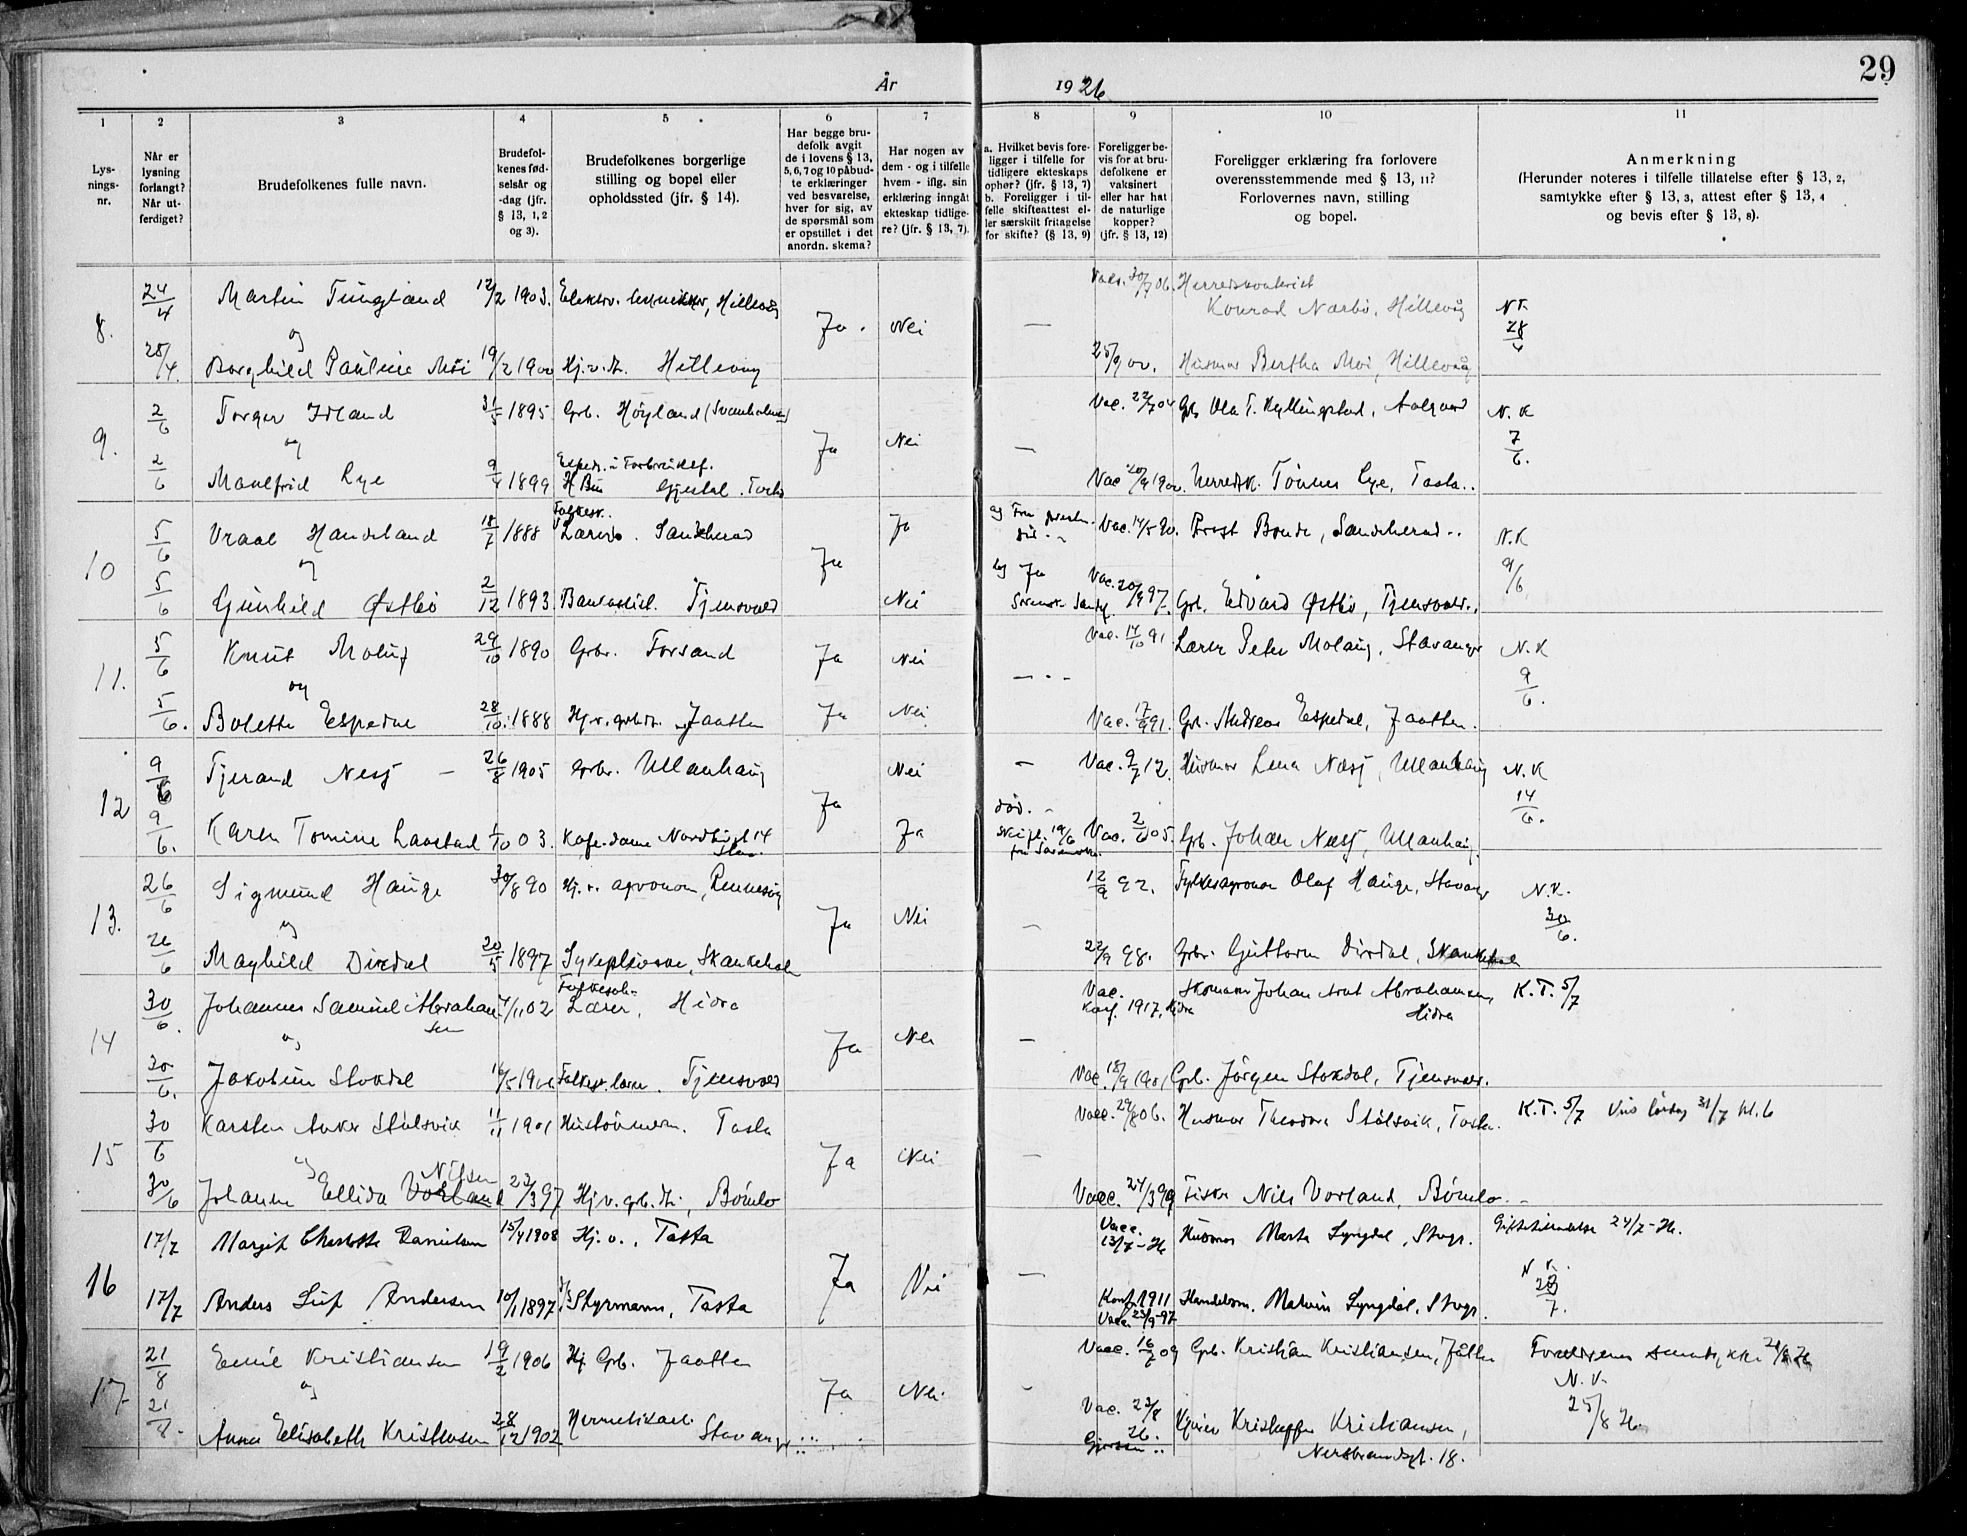 29
År 1926
1 2 3 4 5 6 7 8 9 10 11
Lys-
nings-
nr.
Når er
lysning
forlangt?
Når ut-
ferdiget?
Brudefolkenes fulle navn.
Brudefol-
kenes fød-
selsår og
-dag (jfr.
§ 13, 1, 2
og 3).
Brudefolkenes borgerlige
stilling og bopel eller
opholdssted (jfr. § 14).
Har begge bru-
defolk avgit
de i lovens § 13,
5, 6, 7 og 10 påbud-
te erklæringer
ved besvarelse,
hver for sig, av
de spørsmål som
er opstillet i det
anordn. skema?
Har nogen av
dem - og i tilfelle
hvem - iflg. sin
erklæring inngåt
ekteskap tidlige-
re? (jfr. § 13, 7).
a. Hvilket bevis fore-
ligger i tilfelle for
tidligere ekteskaps
ophør? (jfr. § 13, 7)
b. Foreligger i til-
felle skifteattest el-
ler særskilt fritagelse
for skifte? (§ 13, 9)
Foreligger be-
vis for at bru-
defolkene er
vaksinert
eller har hat
de naturlige
kopper?
(jfr. § 13, 12)
Foreligger erklæring fra forlovere
overensstemmende med § 13, 11?
Forlovernes navn, stilling
og bopel.
Anmerkning
(Herunder noteres i tilfelle tillatelse efter § 13, 2,
samtykke efter § 13, 3, attest efter § 13, 4
og bevis efter § 13, 8).
24/4 Martin Tungland 12/2 1903. Elektro. tekniker, Hillevåg Vacc. 30/7 06. Herredskontorist
Konrad Nærbø, Hillevåg
8. og Ja. Nei — N.K. 28/4
25/4. Borghild Pauline Moi 19/2 1900 Hj.v.m. Hillevåg 25/9 00. Husmor Bertha Moi, Hillevåg
2/6 Torger Idland 31/5 1895 Grb. Høyland (Svanholmen) Vac. 22/7 04 Grb. Ola T. Kyllingstad, Aalgaard N.K
9. og Ja Nei — 7/6.
2/6 Maalfrid Lye 9/4 1899 Gjestal. Vac 20/9 1900. Herredsk. Tønnes Lye, Tasta..
5/6 Vraal Handeland 18/7 1888 Folkesk.
Lærer. Sandeherad Ja Vac. 14/5 90. Prest Bonde, Sandeherad.. N.K
10 og Ja 9/6
5/6 Gunhild Østbø 2/12 1893 Tjensvold Nei b) Ja Vac. 20/9 97. Grb. Edvard Østbø, Tjensvold.
5/6 Knut Molaug 29/10 1890 Grbr. Forsand Ja Nei Vac. 14/10 91. Lærer Peter Molaug, Stavanger N.K
11. og — 9/6.
5/6. Bolette Espedal 28/10. 1888 Hj.v. grb.m. Jaatten Ja Nei Vac. 17/9 91. Grb. Andreas Espedal, Jaatten.
9/6 Tjerand Nesj — 26/8 1905 Grbr. Ullanhaug Nei — Vac. 9/7 12. Husmor Lena Næsj, Ullanhaug N.K
12 Ja død. 14/6.
9/6. Karen Tomine Laastad 1/10 03. Kafe.dame Nordbøgt 14
Stav. Ja Vac. 2/6 05. Grb. Johan Næsj, Ullanhaug.
26/6 Sigmund Hauge 30/8 90 Hj. v. agronom, Rennesøy 12/9 92. Fylkesagronom Olaf Hauge, Stavanger N.K.
13. og Ja Nei — 30/6.
26/6 Magnhild Dirdal 20/5 1897 Sykepleierske, Skankeholm 22/9 98. Grbr. Guttorm Dirdal, Skankeholm
30/6. Johannes Samuel Abraham-
sen 4/11 02 Folkesk.
Lærer, Hidra Vac.
Konf. 1917, Hidra Skomann Johan Arnt Abrahamsen,
Hidra K.T. 5/7
14 og Ja Nei —
30/6. Jakobine Stokdal 1906 Folkesk. lærer. Tjensvold Vac. 18/9 1901 Grb. Jörgen Stokdal, Tjensvold.
30/6 Karsten Anker Stølsvik 11/11 1901 Hustömrer. Tasta Vacc. 29/8 06. Husmor Theodora Stølsvik, Tasta. K.T. 5/7 Vies lørdag 31/7 kl. 6
15 og Ja Nei —
30/6 Johanne Ellida Nilsen Vorland 23/3 97 Hj.v. grb.m., Bömlo Vacc. 24/3 99 Fisker Nils Vorland, Bömlo.
17/7 Margit Charlotte Danielsen 15/4 1908 Hj.v., Tasta Vacc.
13/7 - H Husmor Marta Lyngdal, Stvgr. Giftetillatelse 24/7 - H.
16 Ja Nei — N.K.
28/7.
17/7 Anders Leif Andersen 10/1 1897 Styrmann, Tasta Konf. 1911
Vacc. 23/9-97 Handelsm. Malvin Lyngdal, Stvgr.
21/8 Emil Kristiansen 19/2 1906 Hj. Grb. Jaatten Vacc. 16/7 09 Grb. Kristian Kristiansen, Jåtten Foreldrenes samtykke 21/8 H
17 og Ja Nei — N.K.
21/8. Anna Elisabeth Kristensen 28/12 1902 Hermetikarb. Stavanger Vac. 23/8
26. Kristoffer Kristiansen,
18. 25/8 H.